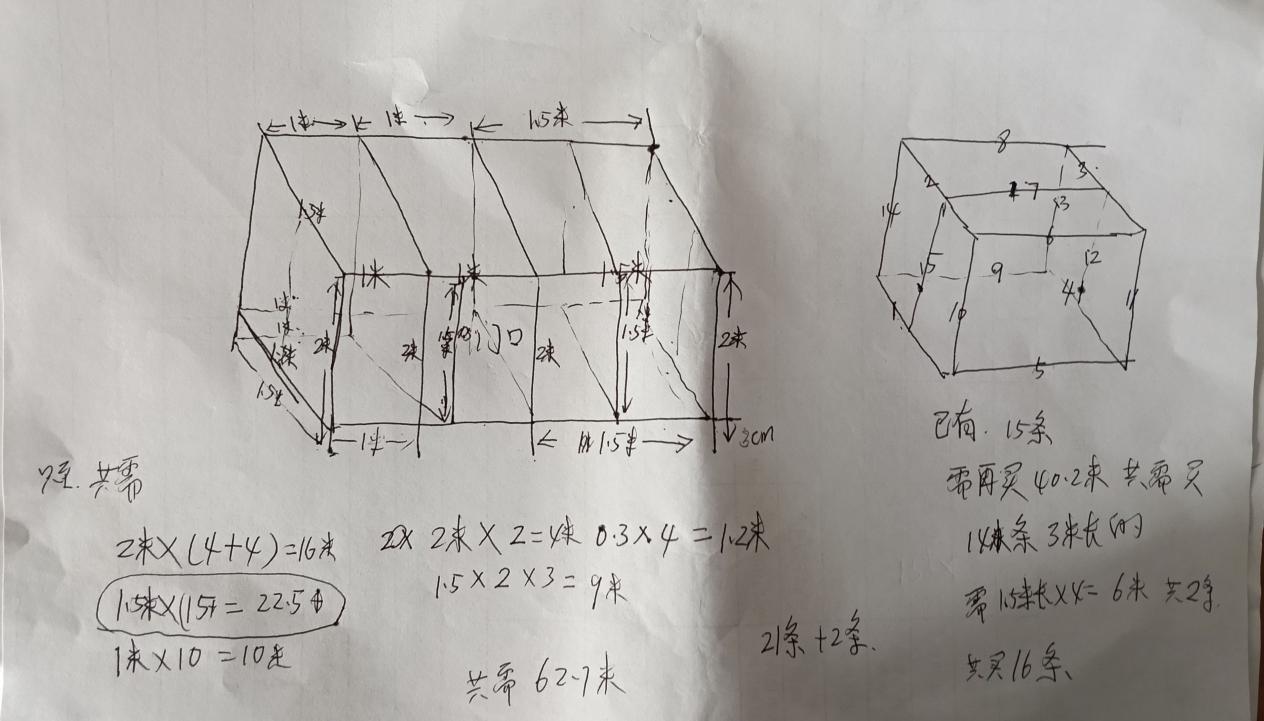 1米 1米 1.5米
1.5米
1米 1米 1.5米
1米
1米
2米 2米 1.5米 门口 2米 1.5米 2米
1.5米
1米 1.5米 3cm
8
2 7 3
14 13
15 9 12
1 10 4 11
5
共需
2米×(4+4)=16米
1.5米×15=22.5
1米×10=10米
2米×2=4米 0.3×4=1.2米
1.5×2×3=9米
共需 62.7米
21条+2条.
已有. 15条
需再买40.2米 共需买
14条3米长的
需1.5米长×4=6米 共2条.
共买16条